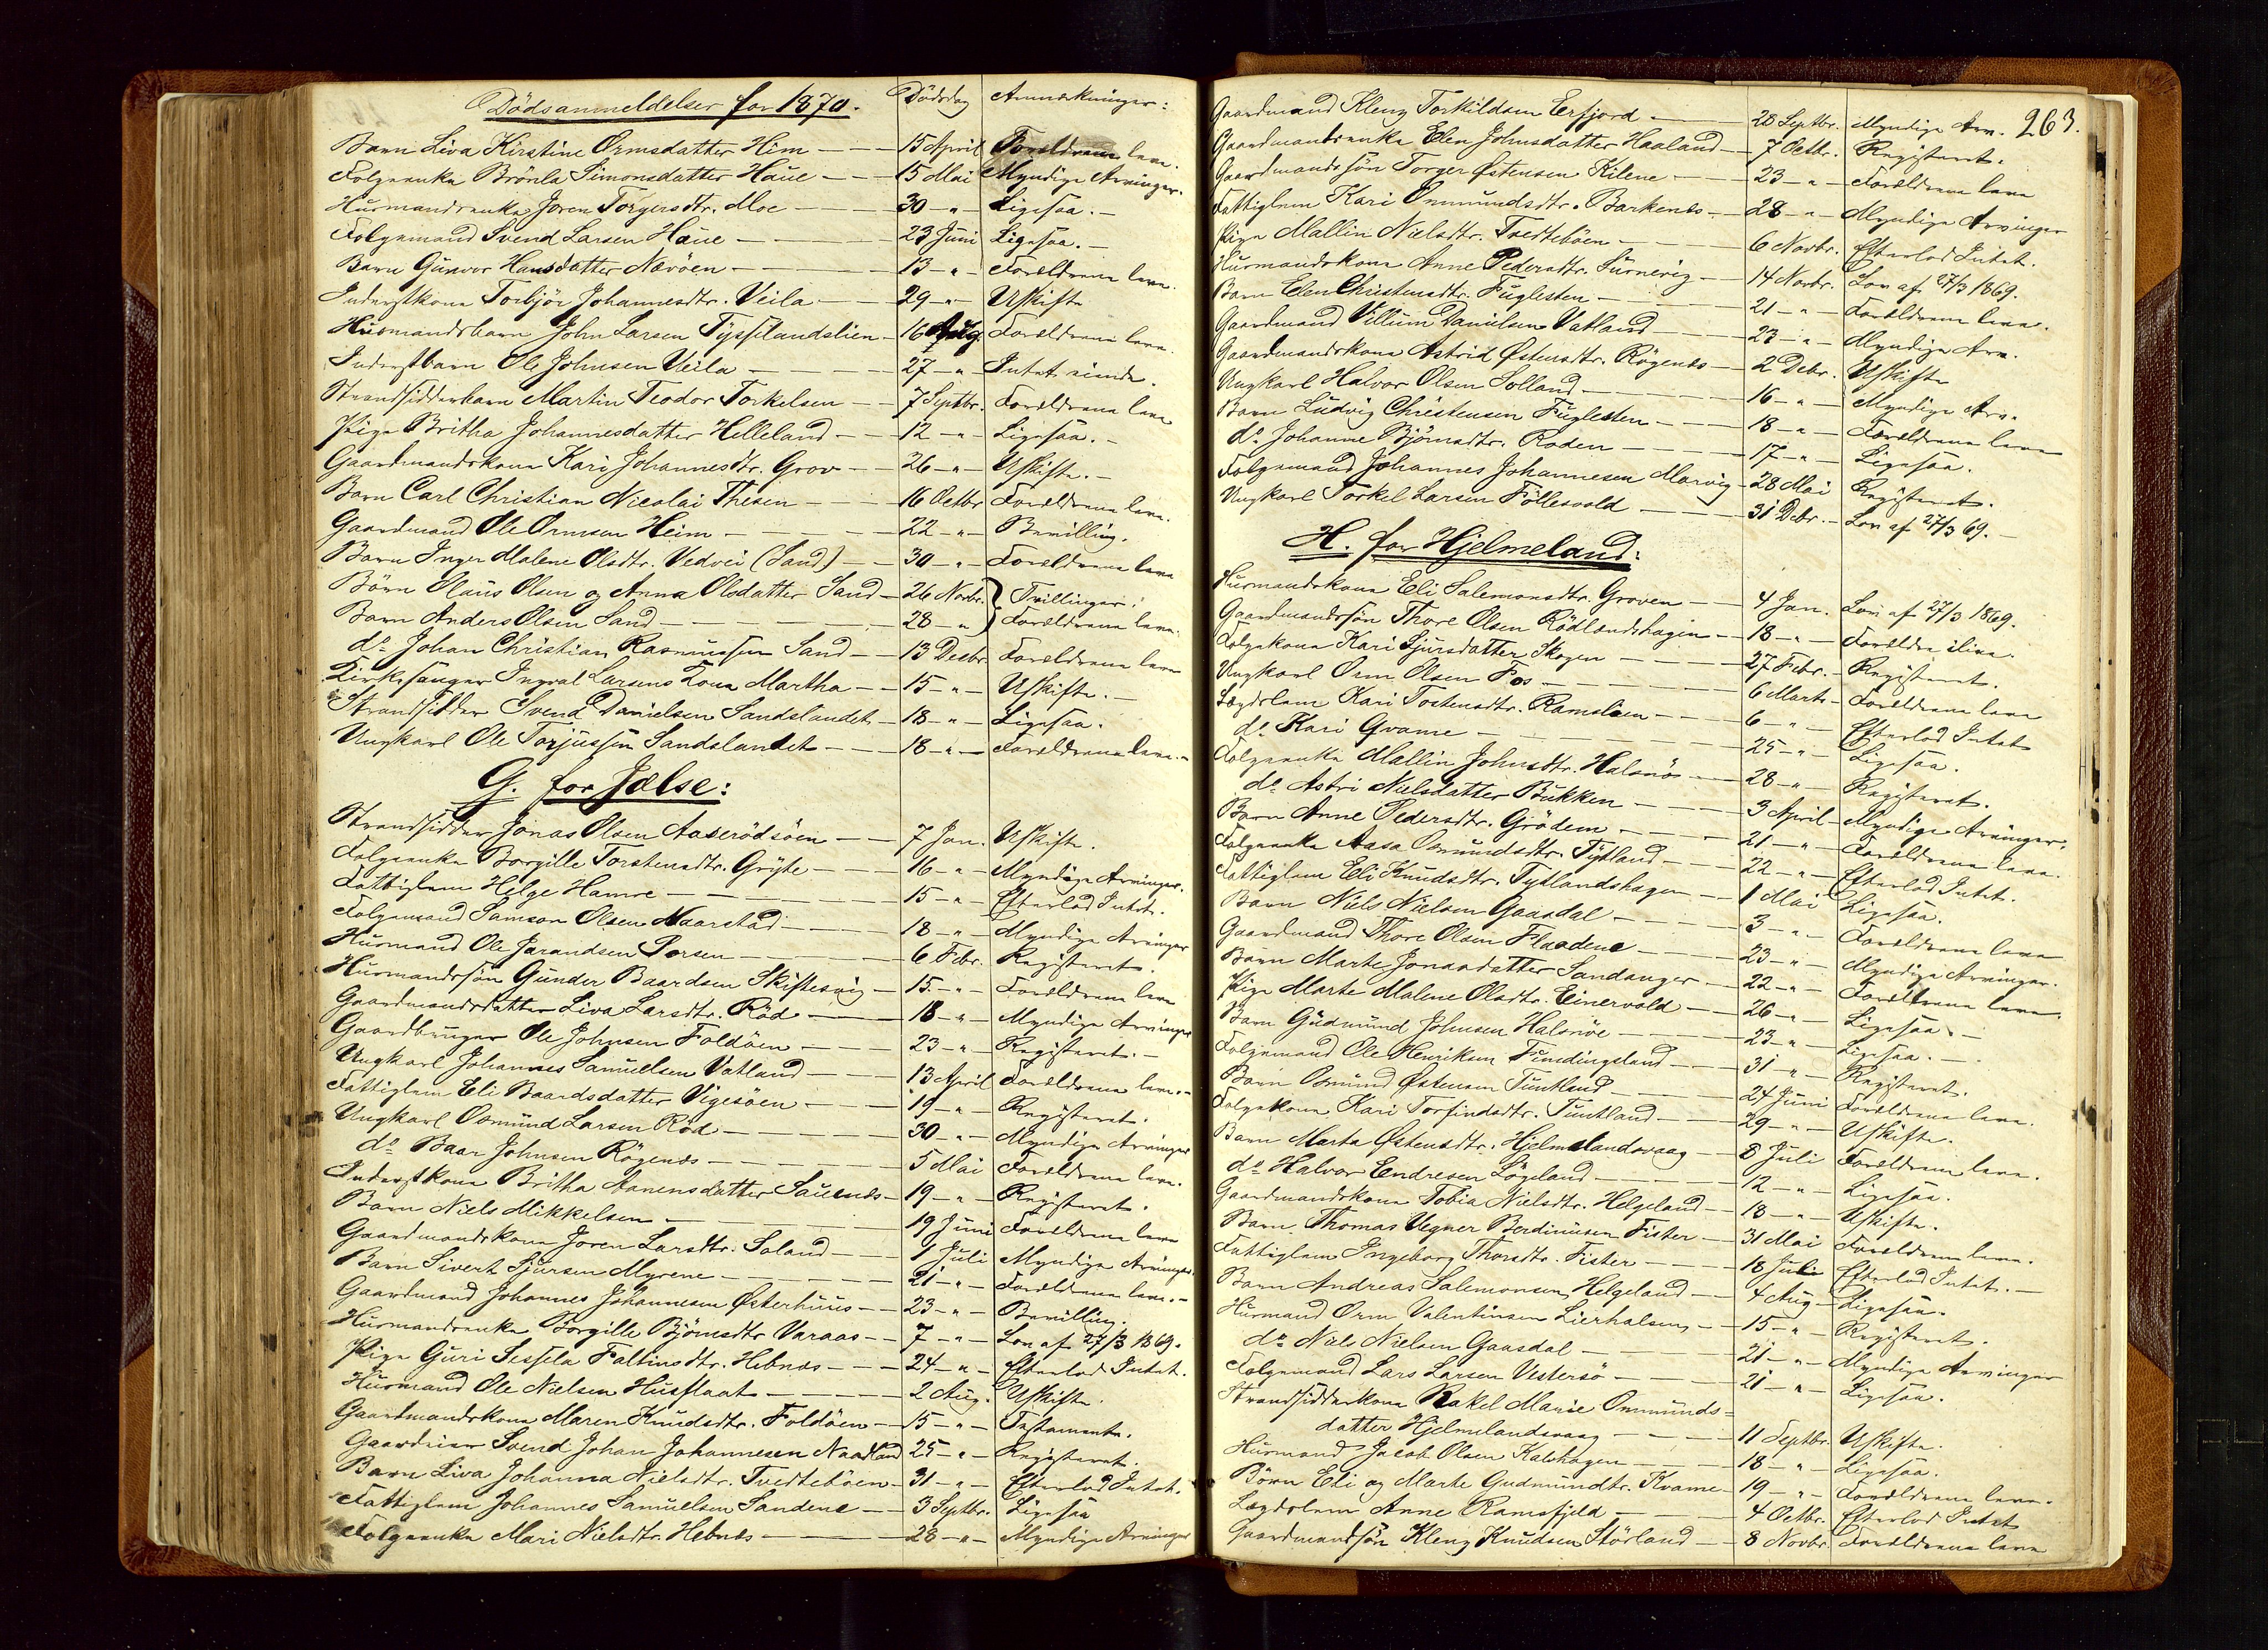 Dödsanmeldelser for 1870. Dödsdag Anmærkninger:
Barn Liva Kirstine Ormsdatter Heim — 15 April Forældrene leve.
Folgeenke Brönla Simonsdatter Haue — 15 Mai Myndige Arvinger.
Husmandsenke Joren Torgersdtr. Moe — 30 - " - Ligesaa. —
Folgemand Svend Larsen Haue — 23 Juni Ligesaa. —
Barn Gunvor Hansdatter Nævöen — 13 - " - Forældrene leve.
Inderstkone Torbjör Johannesdtr. Veila — 29 - " - Uskifte
Husmandsbarn John Larsen Tysslandslien — 16 Aug. Forældrene leve.
Inderstbarn Ole Johnsen Veila — 27 - " - Intet eiende.
Strandsidderbarn Martin Teodor Torkelsen — 7 Septbr. Forældrene leve
Pige Britha Johannesdatter Helleland — 12 - " - Ligesaa. —
Gaardmandskone Kari Johannesdtr. Grov — 26 - " - Uskifte. —
Barn Carl Christian Nicolai Thesen — 16 Octbr Forældrene leve.
Gaardmand Ole Ormsen Heim — 22 - " - Bevilling.
Barn Inger Malene Olsdtr. Vedvei (Sand) — 30 - " - Forældrene leve
Börn Olaus Olsen og Anna Olsdatter Sand — 26 Novbr. } Tvillinger:
Barn Anders Olsen Sand — 28 - " } Forældrene leve.
do. Johan Christian Rasmussen Sand — 13 Decbr. Forældrene leve
Kirkesanger Ingval Larsens Kone Martha — 15 - " - Uskifte. —
Strandsidder Svend Danielsen Sandslandet — 18 - " - Ligesaa.
Ungkarl Ole Torjussen Sandslandet — 18 - " - Forældrene leve. -
G. for Jelse:
Strandsidder Jonas Olsen Aaserödsöen — 7 Jan. Uskifte.
Folgeenke Borgille Torstensdtr. Gryte — 16 - " - Myndige Arvinger.
Fattiglem Helge Hamre — 15 - " - Efterlod Intet.
Folgemand Samson Olsen Maarstad — 18 - " - Myndige Arvinger
Husmand Ole Jarandsen Sorsen — 6 Febr. Registeret.
Husmandssön Gunder Baardsen Skiftesvig — 15. - " - Forældrene leve
Gaardmandsdatter Liva Larsdtr. Röd — 18 - " - Myndige Arvinger
Gaardbruger Ole Johnsen Foldöen — 23 - " - Registeret. —
Ungkarl Johannes Samuelsen Vatland — 13 April Forældrene leve. -
Fattiglem Eli Baardsdatter Vigesöen — 19 - " - Registeret.
Ungkarl Osmund Larsen Röd — 30 - " - Myndige Arvinger
do. Baar Johnsen Rögenæs — 5 Mai Forældrene leve.
Inderstkone Britha Aanensdatter Sauenæs — 19 - " - Registeret.
Barn Niels Mikkelsen — 19 Juni Forældrene leve
Gaardmandskone Joren Larsdtr. Soland — 1 Juli Myndige Arvinger.
Barn Sivert Sjursen Myrene — 21 - " - Forældrene leve. -
Gaardmand Johannes Johannesen Østerhuus — 23 - " - Bevilling.
Husmandsenke Borgille Björnsdtr Varaas — 7 - " - Lov af 27/3 1869.
Pige Guri Sessela Faltinsdtr. Hebnæs — 24 - " - Efterlod Intet.
Husmand Ole Nielsen Husflaat — 2 Aug. Uskifte.
Gaardmandskone Maren Knudsdtr. Foldöen — 15 - " - Testamente.
Gaardeier Svend Johan Johannesen Naadland 25 - " - Registeret.
Barn Liva Johanna Nielsdtr. Tvedteböen — 31 - " - Efterlod Intet.
Fattiglem Johannes Samuelsen Sandene — 3 Septbr. Ligesaa
Folgeenke Mari Nielsdtr. Hebnæs — 28 - " - Myndige Arvinger
263.
Gaardmand Kleng Torkildsen Erfjord — 28 Septbr. Myndige Arv.
Gaardmandsenke Elen Johnsdatter Haaland — 7 Octbr. Registeret.
Gaardmandssön Torger Østensen Kilene — 23 - " - Forældrene leve
Fattiglem Kari Ommundsdtr. Barkenæs — 28 - " - Myndige Arvinger
Pige Mallin Nielsdtr. Tvedteböen — 6 Novbr. Efterlod Intet.
Husmandskone Anne Pedersdtr. Surnevig — 14 Novbr. Lov af 27/3 1869.
Barn Elen Christensdtr. Fuglesten — 21 - " - Forældrene leve.
Gaardmand Villum Danielsen Vatland — 23 - " - Myndige Arv.
Gaardmandskone Astrid Østensdtr. Rögenæs — 2 Debr. Uskifte
Ungkarl Halvor Olsen Solland — 16 - " - Myndige Arv.
Barn Ludvig Christensen Fuglesten — 18 - " - Forældrene leve
do. Johanne Björnsdtr. Roden — 17 - " - Ligesaa.
Folgemand Johannes Johannesen Marvig — 28 Mai Registeret.
Ungkarl Torkel Larsen Föllesvold — 31 Debr. — Lov af 27/3 69. —
H. for Hjelmeland:
Husmandskone Eli Salemonsdtr. Groven — 4 Jan. Lov af 27/3 1869.
Gaardmandssön Thore Olsen Rödlandshagen — 18 - " - Forældre ilive.
Folgekone Kari Sjursdatter Skogen — 27 Febr. - Registeret.
Ungkarl Orm Olsen Fos — 6 Marts - Forældrene leve
Lægdslem Kari Tostensdtr. Ramslien — 6 - " - Efterlod Intet
do. Kari Qvame — 25 - " - Ligesaa.
Folgeenke Mallin Johnsdtr. Halsnös — 28 - " - Registeret.
do. Astri Nielsdatter Bukken — 3 April - Myndige Arvinger.
Barn Anne Pedersdtr. Grödem — 21 - " - Forældrene leve.
Folgeenke Aasa Osmundsdtr. Tytland — 22 - " - Efterlod Intet.
Fattiglem Eli Knudsdtr. Tytlandshagen — 1 Mai Ligesaa.
Barn Niels Nielsen Gaasdal — 3 - " - Forældrene leve
Gaardmand Thore Olsen Flaadene — 23 - " - Myndige Arvinger.
Barn Marte Jonasdatter Sandanger — 22 - " - Forældrene leve.
Pige Marte Malene Olsdtr. Einervold — 26 - " - Ligesaa. —
Barn Gudmund Johnsen Halsnöe — 23 - " - Ligesaa. —
Folgemand Ole Henriksen Fundingsland — 31 - " - Registeret.
Barn Osmund Østensen Tuntland — 24 Juni Forældrene leve.
Folgekone Kari Torfindsdtr. Tuntland — 29 - " - Uskifte.
Barn Marta Østensdtr. Hjelmelandsvaag — 8 Juli Forældrene leve.
do. Halvor Endresen Lögeland — 12 - " - Ligesaa.
Gaardmandskone Tobia Nielsdtr. Helgeland — 18 - " - Uskifte.
Barn Thomas Vegner Berdinusen Fister — 31 Mai Forældrene leve.
Fattiglem Ingeborg Thorsdtr. Fister — 18 Juli Efterlod Intet. —
Barn Andreas Salemonsen Helgeland — 4 Aug — Ligesaa.
Husmand Orm Valentinsen Lierhalsen — 15 - " - Registeret.
do. Niels Nielsen Gaasdal — 21 - " - Myndige Arvinger
Folgemand Lars Larsen Vestersö — 21 - " - Ligesaa.
Strandsidderkone Rakel Marie Ommunds-
datter Hjelmelandsvaag — 11 Septbr. Uskifte.
Husmand Jacob Olsen Kalvhagen — 18 - " - Ligesaa.
Börn Eli og Marte Gudmundtr. Kvame — 19 - " - Forældrene leve.
Lægdslem Anne Ramsfjeld — 4 Octbr. Efterlod Intet
Gaardmandssön Kleng Knudsen Störland — 8 Novbr. Forældrene leve